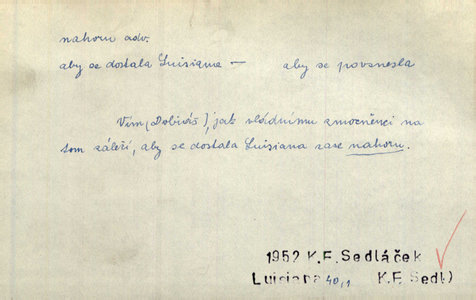 nahoru adv.
aby se dostala Luisiana — aby se povznesla
Vím (Dobiáš), jak vládnímu zmocněnci na
tom záleží, aby se dostala Luisiana zase nahoru.
1952 K.F. Sedláček
Luisiana 40,1 K.F. Sedl)